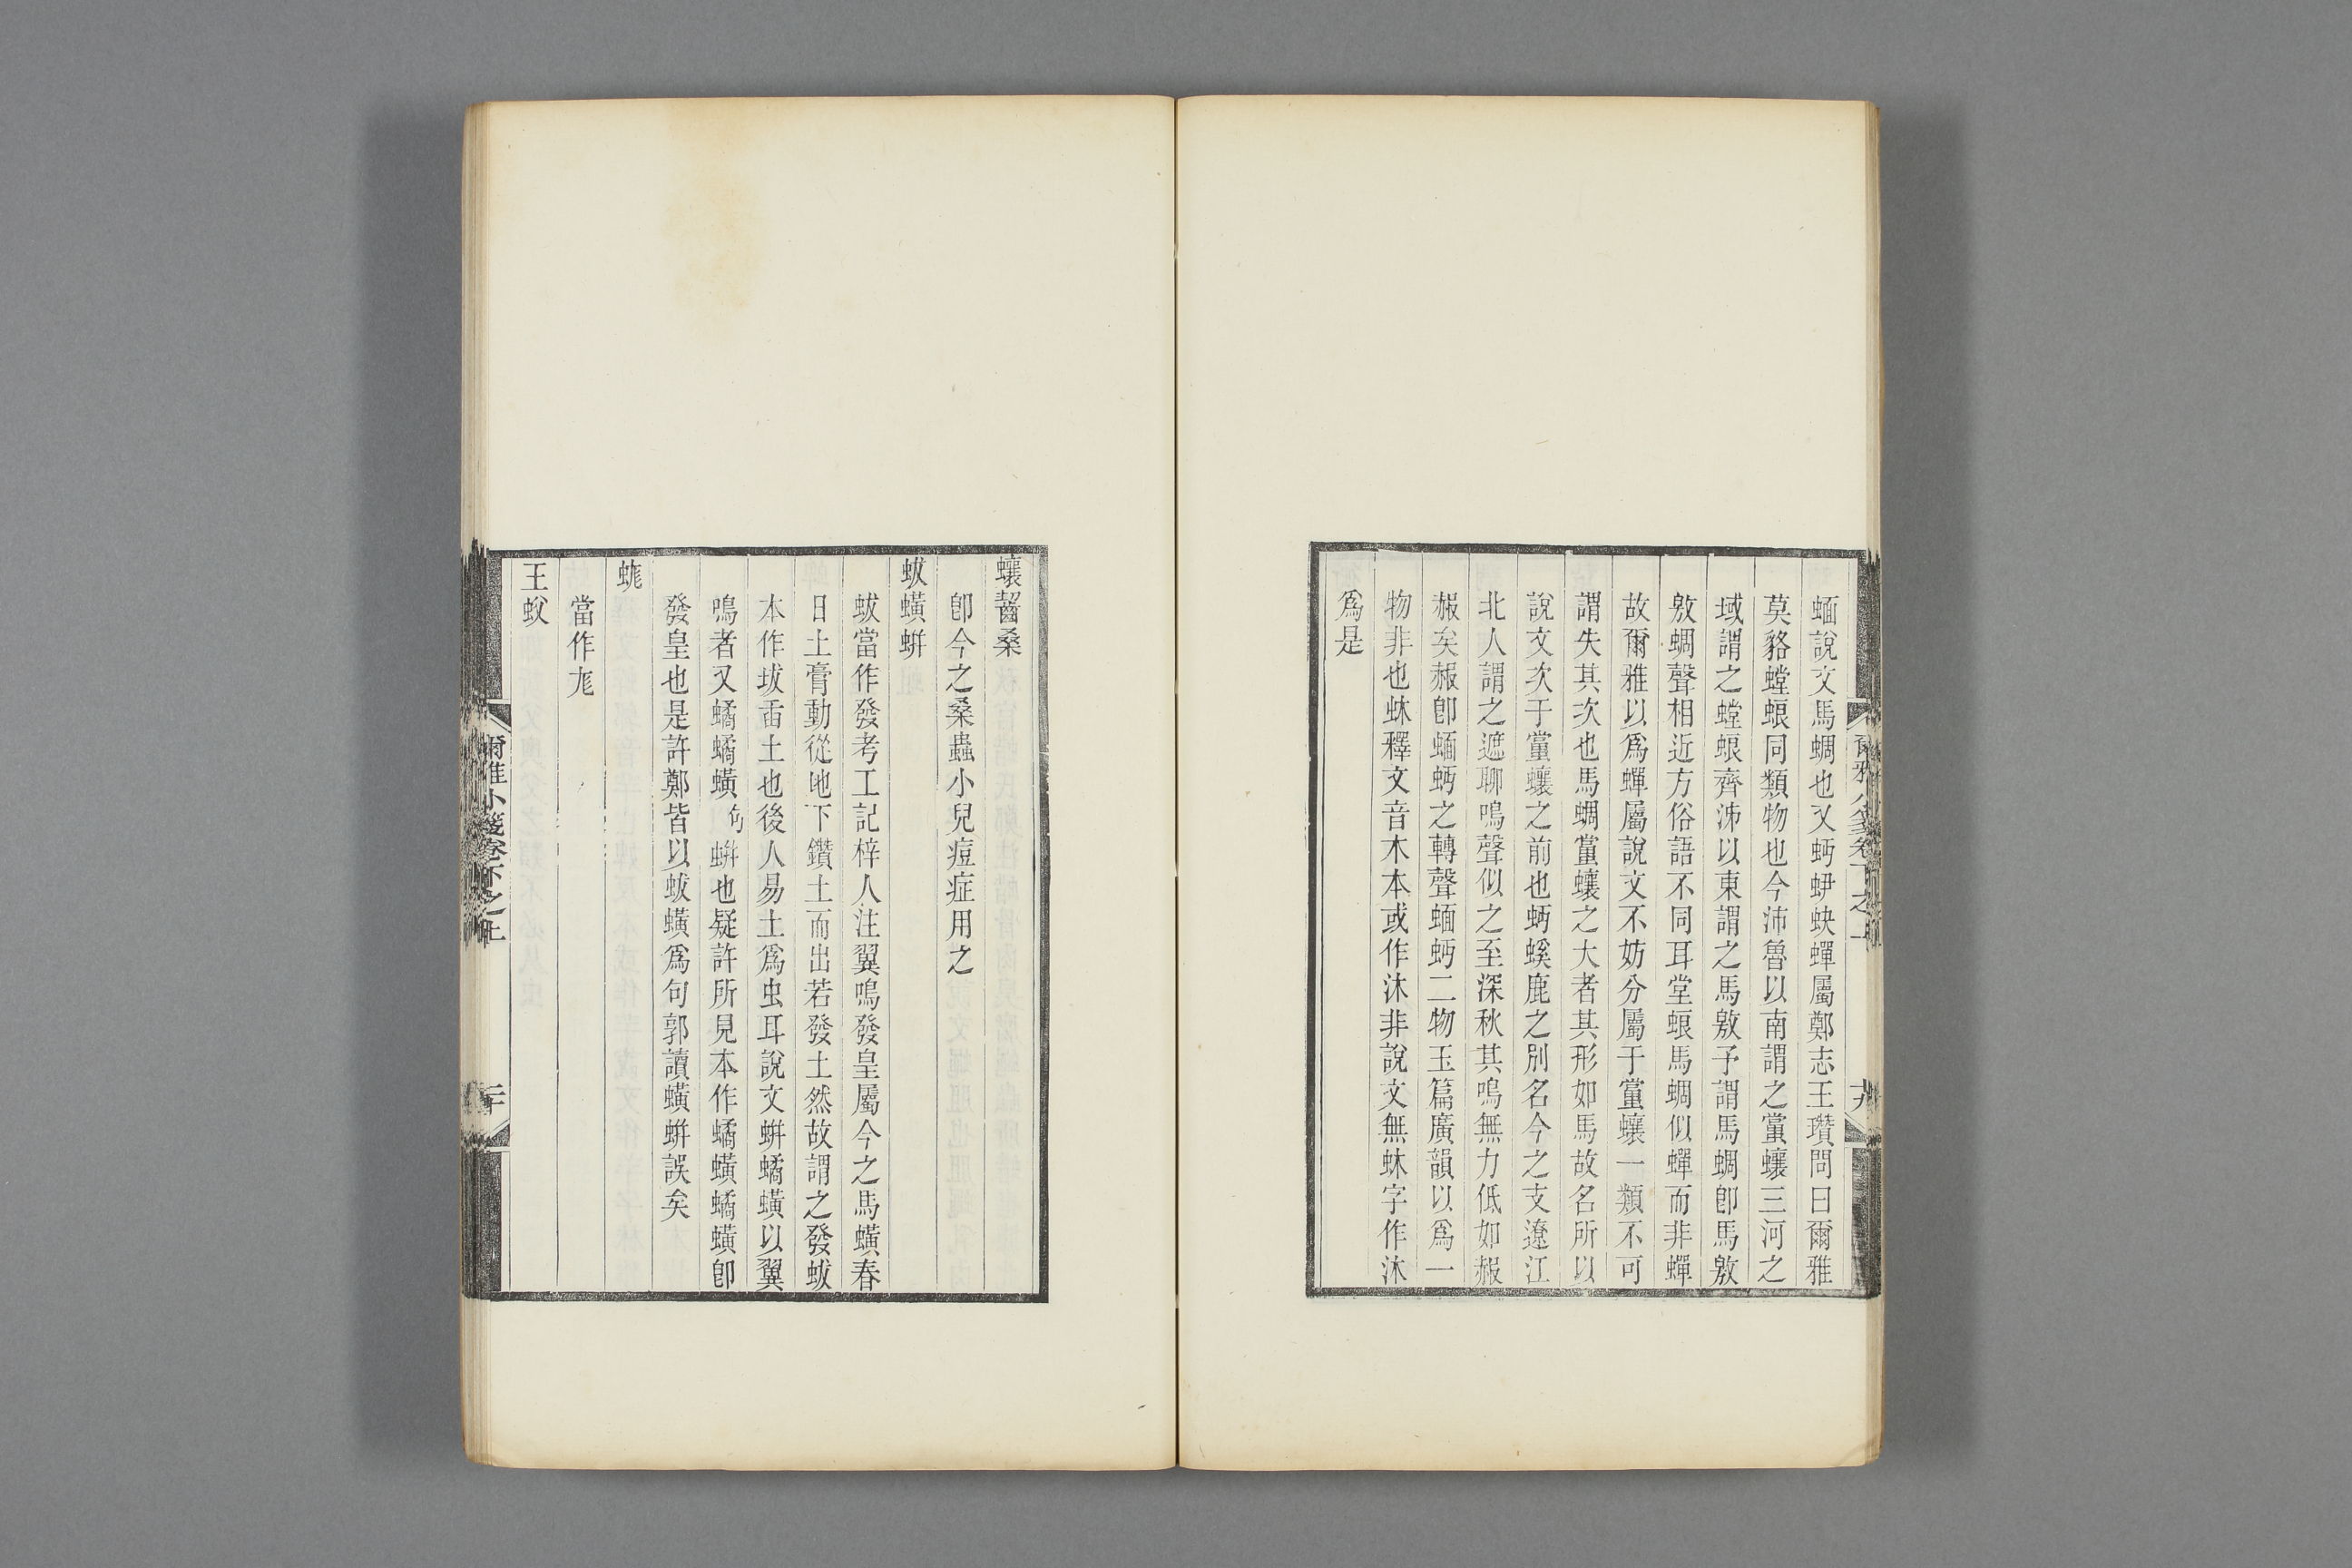 蝒說文馬蜩也又蛃蛜蚗蟬屬鄭志王瓚問曰爾雅
莫貉螳蜋同類物也今沛魯以南謂之蟷蠰三河之
域謂之螳蜋齊沛以東謂之馬敫予謂馬蜩卽馬敫
敫蜩聲相近方俗語不同耳堂蜋馬蜩似蟬而非蟬
故爾雅以爲蟬屬說文不妨分屬于蟷蠰一類不可
謂失其次也馬蜩蟷蠰之大者其形如馬故名所以
說文次于蟷蠰之前也蛃螇鹿之別名今之支遼江
北人謂之遮聊鳴聲似之至深秋其鳴無力低如赧
赧矣赧卽蝒蛃之轉聲蝒蛃二物玉篇廣韻以爲一
物非也蚞釋文音木本或作沐非說文無蚞字作沐
爲是
蠰齧桑
卽今之桑蟲小兒痘症用之
蛂蟥蛢
蛂當作發考工記梓人注翼鳴發皇屬今之馬蟥春
日土膏動從地下鑽土而出若發土然故謂之發蛂
本作坺臿土也後人易土爲虫耳說文蛢蟠蟥以翼
鳴者又蟠蟠蟥蛢也疑許所見本作蟠蟥蟠蟥卽
發皇也是許鄭皆以蛂蟥爲句郭讀蟥蛢誤矣
當作尨
王蚥
爾雅小箋卷下之上